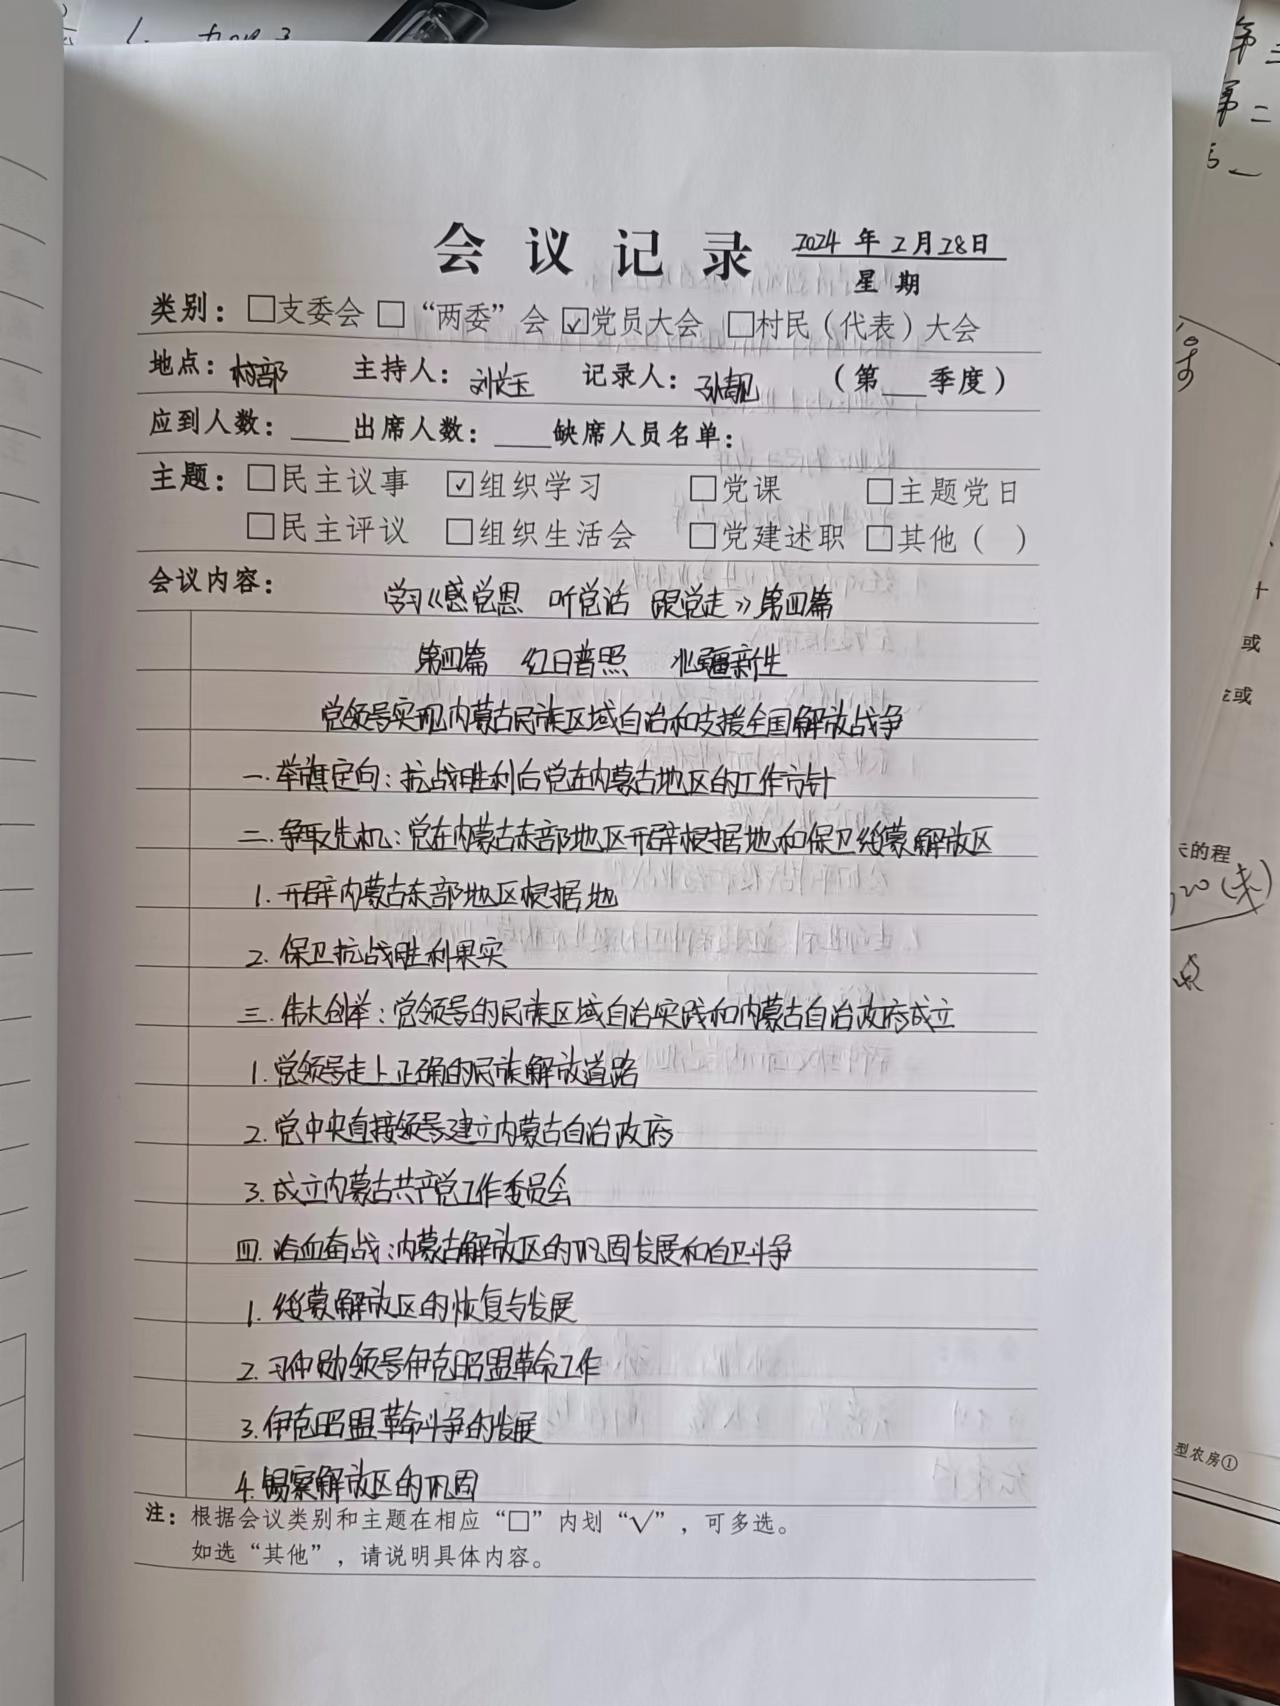 会议记录 2024年2月28日
星期
类别：□支委会 □“两委”会 ☑党员大会 □村民（代表）大会
地点：村部 主持人：刘文玉 记录人：孙靓 （第___季度）
应到人数：____出席人数：____缺席人员名单：
主题：□民主议事 ☑组织学习 □党课 □主题党日
□民主评议 □组织生活会 □党建述职 □其他（ ）
会议内容：
学习《感党恩 听党话 跟党走》第四篇
第四篇 红日普照 北疆新生
党领导实现内蒙古民族区域自治和支援全国解放战争
一.举旗定向：抗战胜利后党在内蒙古地区的工作方针
二.争取先机：党在内蒙古东部地区开辟根据地和保卫绥蒙解放区
1.开辟内蒙古东部地区根据地
2.保卫抗战胜利果实
三.伟大创举：党领导的民族区域自治实践和内蒙古自治政府成立
1.党领导走上正确的民族解放道路
2.党中央直接领导建立内蒙古自治政府
3.成立内蒙古共产党工作委员会
四.浴血奋战：内蒙古解放区的巩固发展和自卫斗争
1.绥蒙解放区的恢复与发展
2.习仲勋领导伊克昭盟革命工作
3.伊克昭盟革命斗争的发展
4.锡察解放区的巩固
注：根据会议类别和主题在相应“□”内划“√”，可多选。
如选“其他”，请说明具体内容。
第三
第二
或
或
的程
型农房①